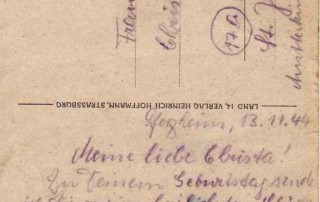 Frau
Christa
(17a)
St. J
LAND 14, VERLAG HEINRICH HOFFMANN, STRASSBURG
Pforzheim, 13.11.44
Meine liebe Christa!
Zu Deinem Geburtstag sende